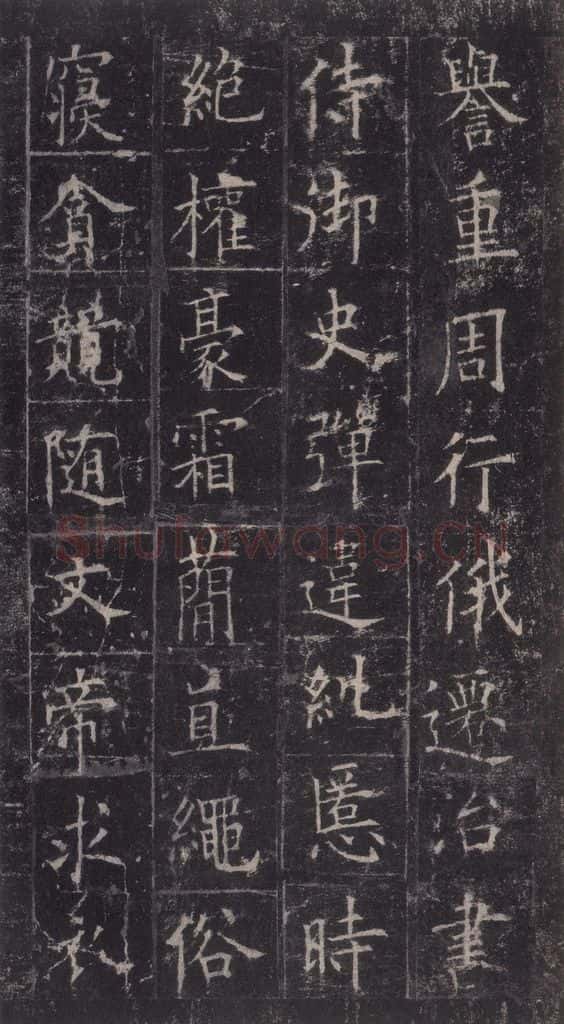 譽重周行俄遷治書
侍御史彈違糾慝時
絶權豪霜蕳直繩俗
寢貪競随文帝求衣
Shufawang.CN